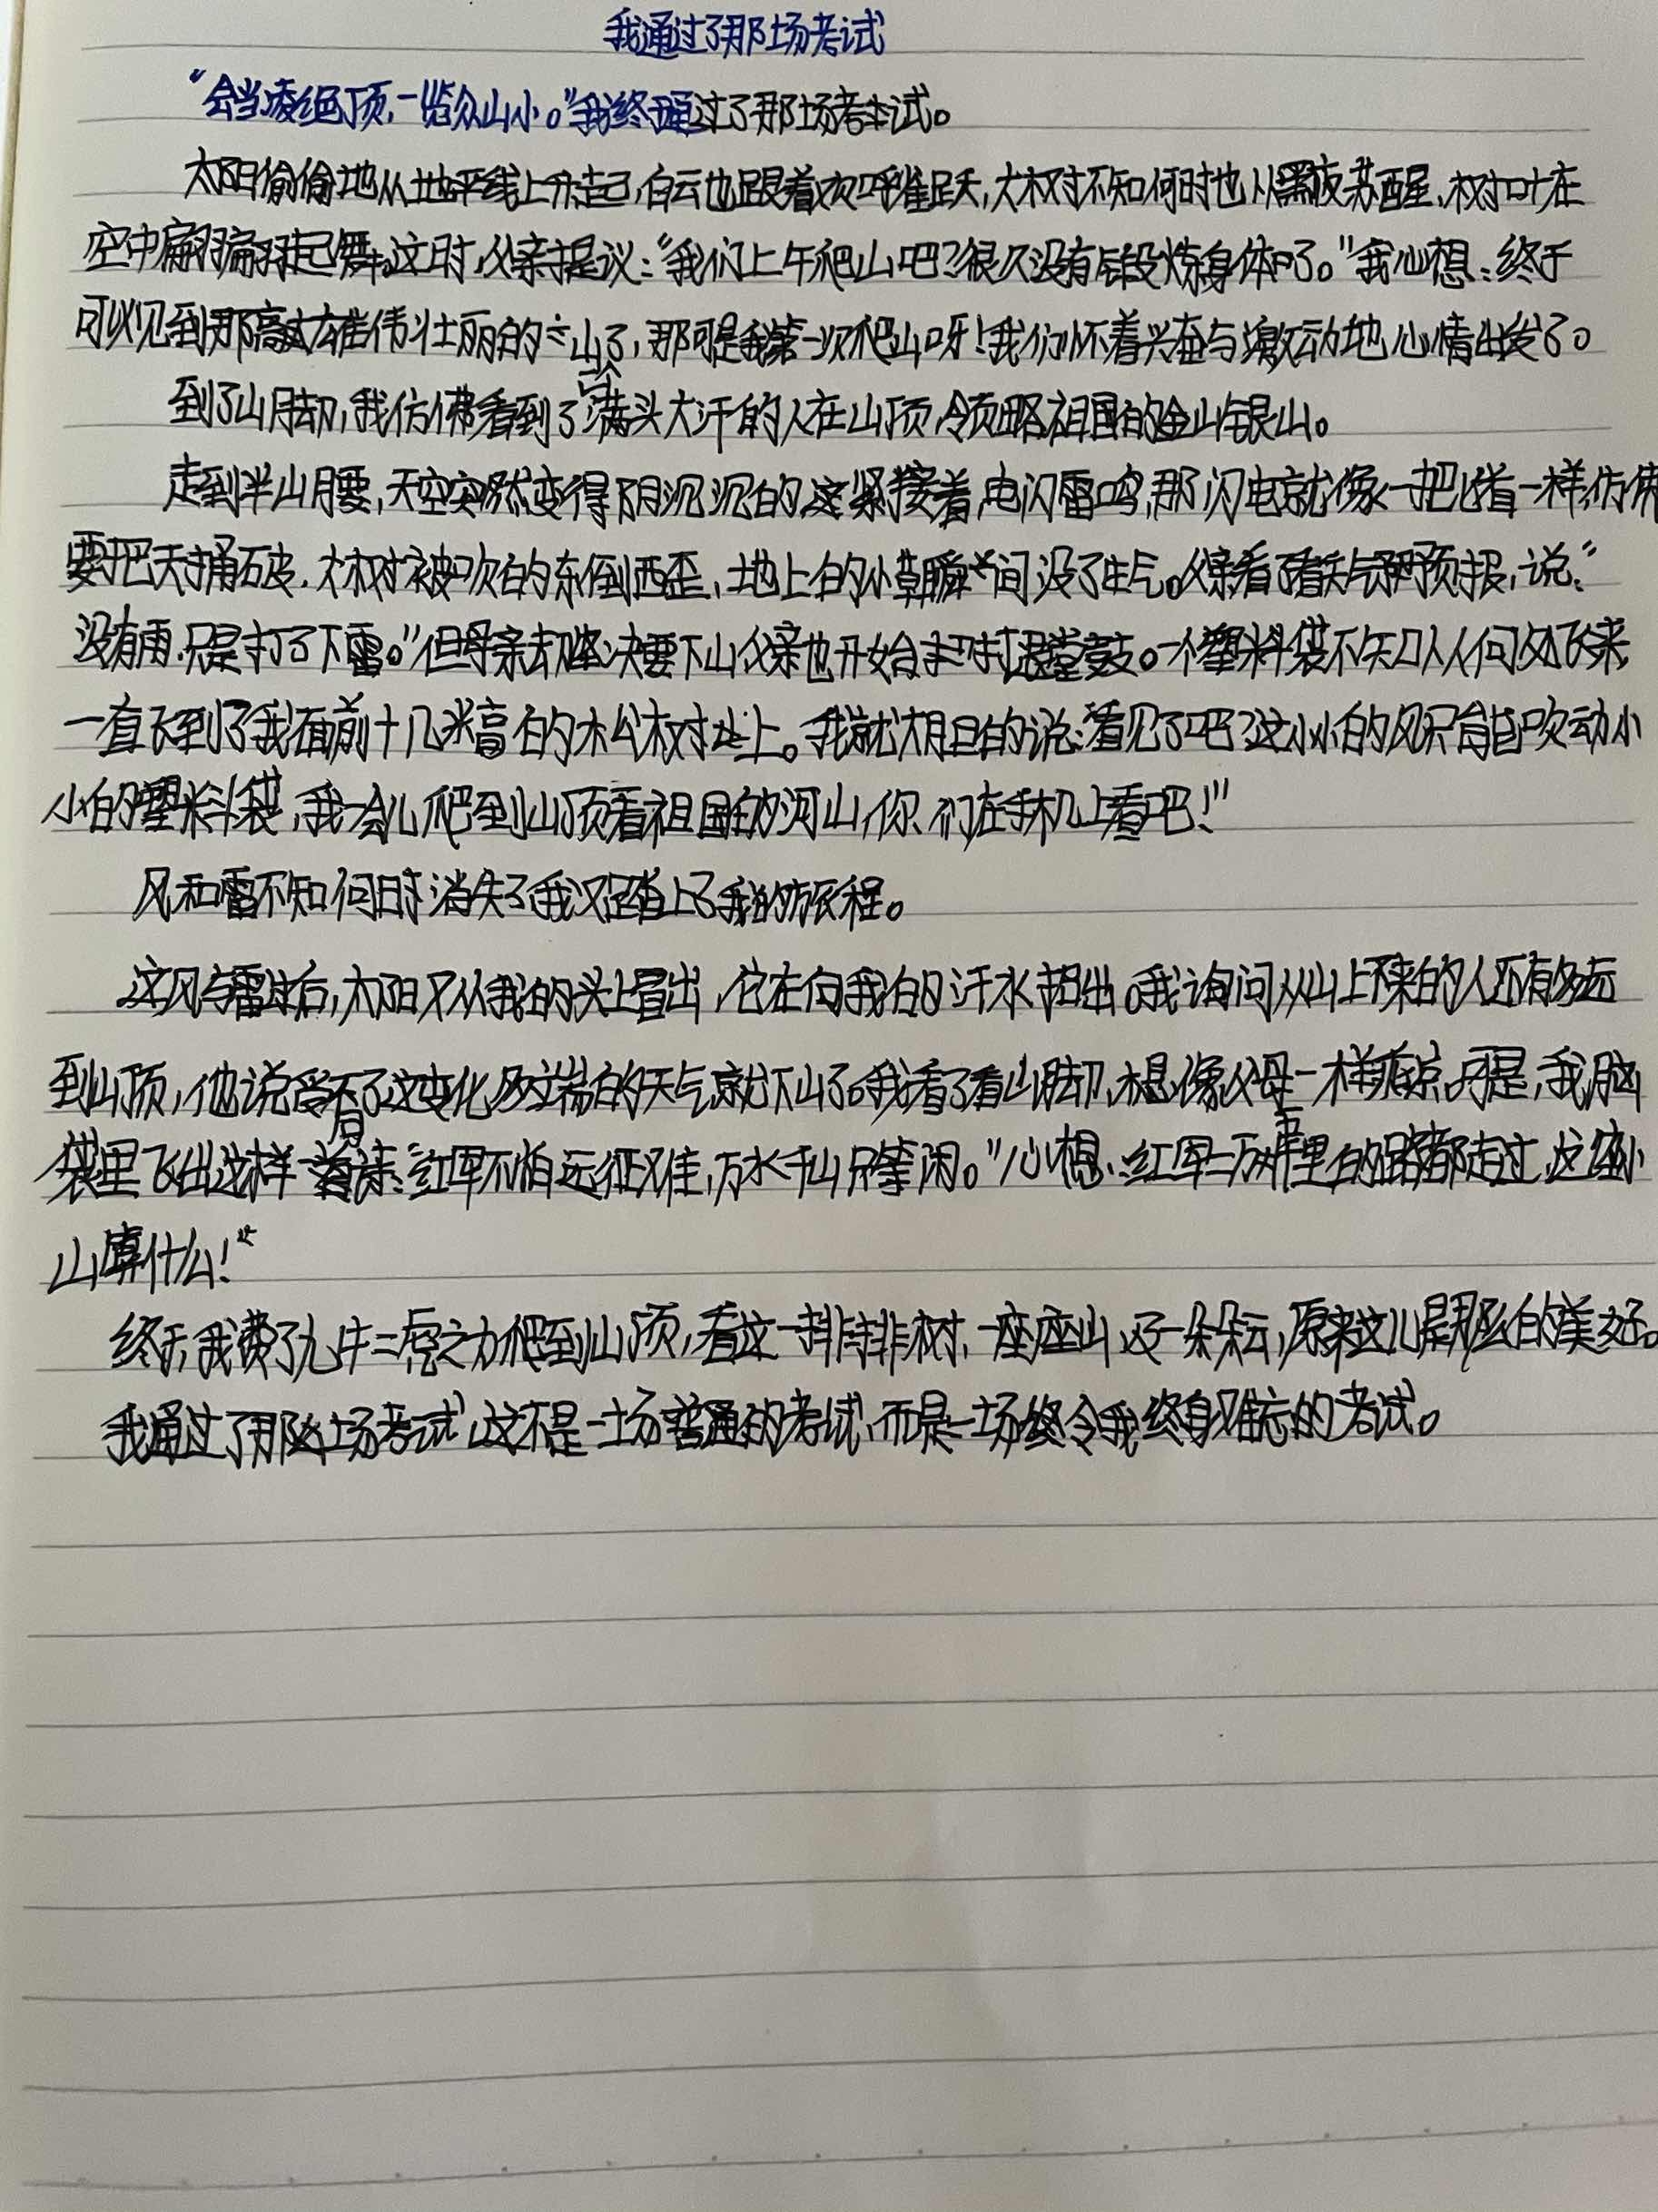 我通过了那场考试
“会当凌绝顶,一览众山小。”我终于通过了那场考试。
太阳偷偷地从地平线上升起,白云也跟着欢呼雀跃,大树不知何时也从黑夜苏醒、树叶在
空中翩翩起舞。这时,父亲提议:“我们上午爬山吧?很久没有锻炼身体了。”我心想:终于
可以见到那雄伟壮丽的山了,那可是我第一次爬山呀!我们怀着兴奋与激动地心情出发了。
到了山脚,我仿佛看到了满头大汗的人在山顶,领略祖国的金山银山。
走到半山腰,天空突然变得阴沉沉的,紧接着,电闪雷鸣,那闪电就像一把一样,仿佛
要把天捅破、大树被吹的东倒西歪、地上的小草瞬间没了生气。父亲看了看天气预报,说:“
没有雨、只是打了下雷。”但母亲却坚决要下山,父亲也开始打退堂鼓。一个塑料袋不知从何处飞来,
一直飞到了我面前十几米高的松树上。我就大胆的说:“看见了吧?这小小的风只能吹动小
小的塑料袋,我一会儿爬到山顶看祖国的河山,你们在手机上看吧!”
风和雷不知何时消失了,我又踏上了我的旅程。
这风与雷过后,太阳又从我的头上冒出,它在向我的汗水招。我询问从山上下来的人还有多远
到山顶,他说受不了这变化多端的天气,就下山了。我看了看山脚,想像父母一样。可是,我脑
袋里飞出这样一首诗:“红军不怕远征难,万水千山只等闲。”心想:红军二万五千里的路都走过,这座小
山算什么!“
终于,我费了九牛二虎之力爬到山顶,看这一排排树、一座座山、一朵朵云,原来这儿是那么的美好。
我通过了那场考试,这不是一场普通的考试,而是一场令我终身难忘的考试。